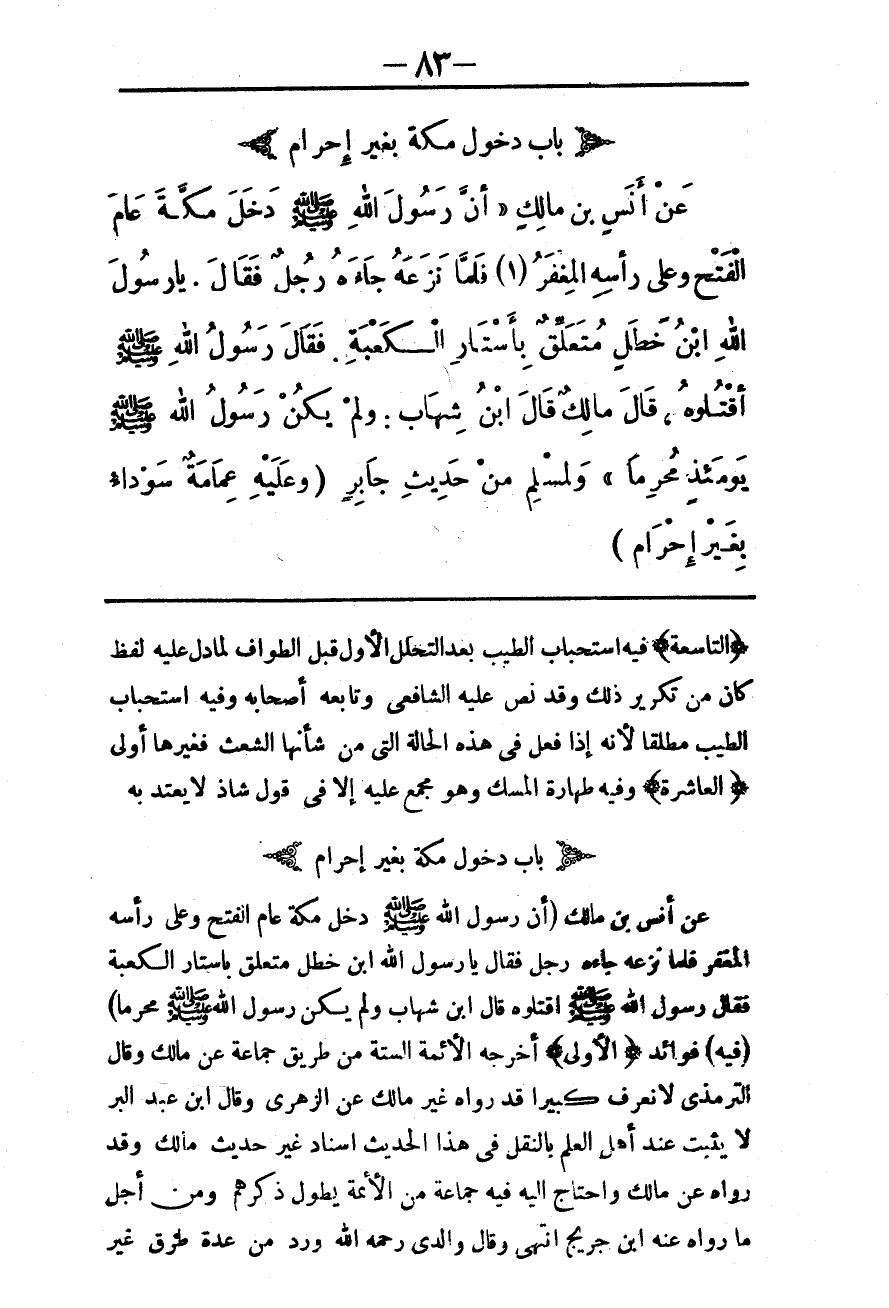 — ٨٣ —
باب دخول مكة بغير إحرام
عَنْ أَنَسِ بن مالِكٍ « أنَّ رَسُولَ اللهِ ﷺ دَخَلَ مكَّةَ عَامَ
الْفَتْحِ وعلى رأسِهِ المِغفَرُ (١) فَلمَّا نَزَعَهُ جَاءَهُ رجُلٌ فَقَالَ . يارسُولَ
اللهِ ابْنُ خَطَلٍ مُتَعَلِّقٌ بِأَسْتَارِ الْكَعْبَةِ . فقَالَ رَسُولُ اللهِ ﷺ
أقْتُلوهُ ، قَالَ مالِكٌ قَالَ ابْنُ شِهَاب : ولمْ يكُنْ رَسُولُ الله ﷺ
يَومَئذٍ مُحْرِماً » وَلمسْلِمٍ منْ حَدِيثِ جَابِرٍ ( وعَلَيْهِ عِمَامَةٌ سَوْداءُ
بِغَيْرِ إِحْرَام )
﴿التاسعة﴾ فيه استحباب الطيب بعد التحلل الأول قبل الطواف لمادل عليه لفظ
كان من تكرير ذلك وقد نص عليه الشافعى وتابعه أصحابه وفيه استحباب
الطيب مطلقا لأنه إذا فعل فى هذه الحالة التى من شأنها الشعث فغيرها أولى
﴿ العاشرة﴾ وفيه طهارة المسك وهو مجمع عليه إلا فى قول شاذ لايعتد به
باب دخول مكة بغير إحرام
عن أنس بن مالك (أن رسول الله ﷺ دخل مكة عام الفتح وعلى رأسه
المغفر فلما نزعه جاءه رجل فقال يارسول الله ابن خطل متعلق باستار الكعبة
فقال رسول الله ﷺ اقتلوه قال ابن شهاب ولم يكن رسول الله ﷺ محرما)
(فيه) فوائد ﴿ الأولى﴾ أخرجه الأئمة الستة من طريق جماعة عن مالك وقال
الترمذى لانعرف كبيرا قد رواه غير مالك عن الزهرى وقال ابن عبد البر
لا يثبت عند أهل العلم بالنقل فى هذا الحديث اسناد غير حديث مالك وقد
رواه عن مالك واحتاج اليه فيه جماعة من الأئمة يطول ذكرهم ومن أجل
ما رواه عنه ابن جريج انتهى وقال والدى رحمه الله ورد من عدة طرق غير